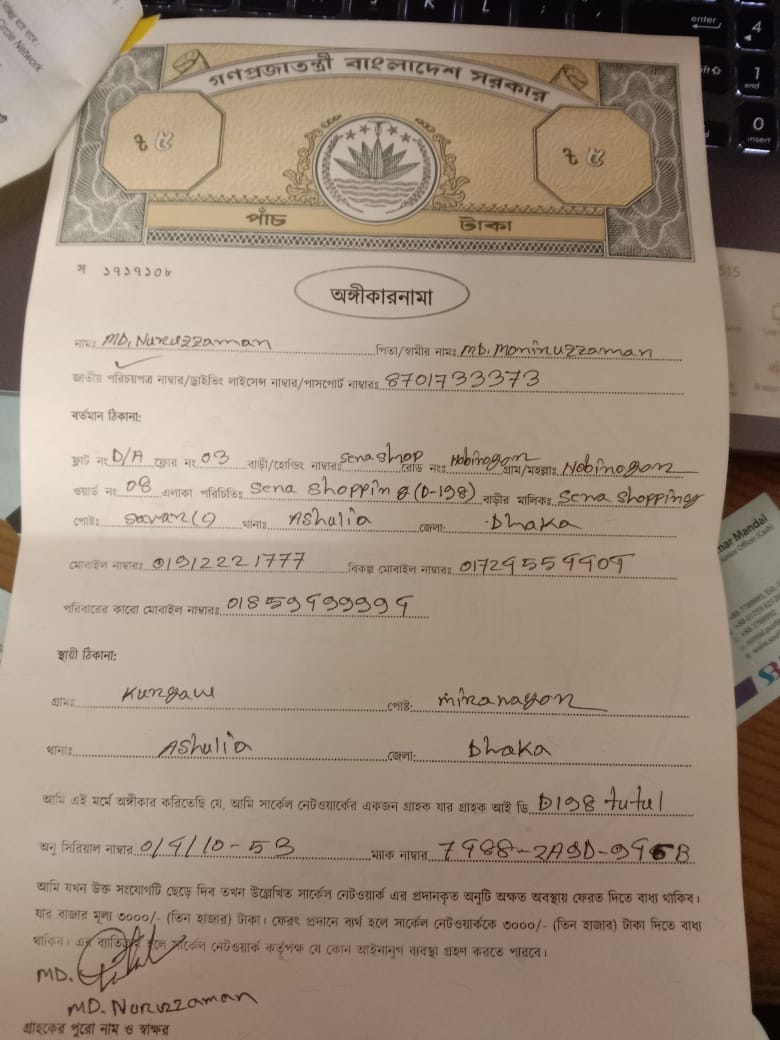 গণপ্রজাতন্ত্রী বাংলাদেশ সরকার
৳ ৫
৳ ৫
পাঁচ টাকা
স ১৭১৭১০৮
অঙ্গীকারনামা
নামঃ MD. Nuruzzaman পিতা/স্বামীর নামঃ MD. Moniruzzaman
জাতীয় পরিচয়পত্র নাম্বার/ড্রাইভিং লাইসেন্স নাম্বার/পাসপোর্ট নাম্বারঃ 8701733373
বর্তমান ঠিকানা:
ফ্লাট নং D/A ফ্লোর নং 03 বাড়ী/হোল্ডিং নাম্বারঃ Sena Shop রোড নংঃ Nobinogor গ্রাম/মহল্লাঃ Nobinogor
ওয়ার্ড নং 08 এলাকা পরিচিতিঃ Sena Shopping (D-198) বাড়ীর মালিকঃ Sena Shopping
পোষ্টঃ Savar থানাঃ Ashulia জেলা: Dhaka
মোবাইল নাম্বারঃ 01912221777 বিকল্প মোবাইল নাম্বারঃ
পরিবারের কারো মোবাইল নাম্বারঃ
স্থায়ী ঠিকানা:
গ্রামঃ পোষ্ট: Miranagor
থানাঃ Ashulia জেলা: Dhaka
আমি এই মর্মে অঙ্গীকার করিতেছি যে, আমি সার্কেল নেটওয়ার্কের একজন গ্রাহক যার গ্রাহক আই ডি D198 tutul
অনু সিরিয়াল নাম্বার ম্যাক নাম্বার
আমি যখন উক্ত সংযোগটি ছেড়ে দিব তখন উল্লেখিত সার্কেল নেটওয়ার্ক এর প্রদানকৃত অনুটি অক্ষত অবস্থায় ফেরত দিতে বাধ্য থাকিব।
যার বাজার মূল্য ৩০০০/- (তিন হাজার) টাকা। ফেরৎ প্রদানে ব্যর্থ হলে সার্কেল নেটওয়ার্ককে ৩০০০/- (তিন হাজার) টাকা দিতে বাধ্য
থাকিব। এর হলে সার্কেল নেটওয়ার্ক কর্তৃপক্ষ যে কোন আইনানুগ ব্যবস্থা গ্রহণ করতে পারবে।
MD.
MD. Noruzzaman
গ্রাহকের পুরো নাম ও স্বাক্ষর
Circle Network
mar Mandal
enter
4
1
end
0
insert
515